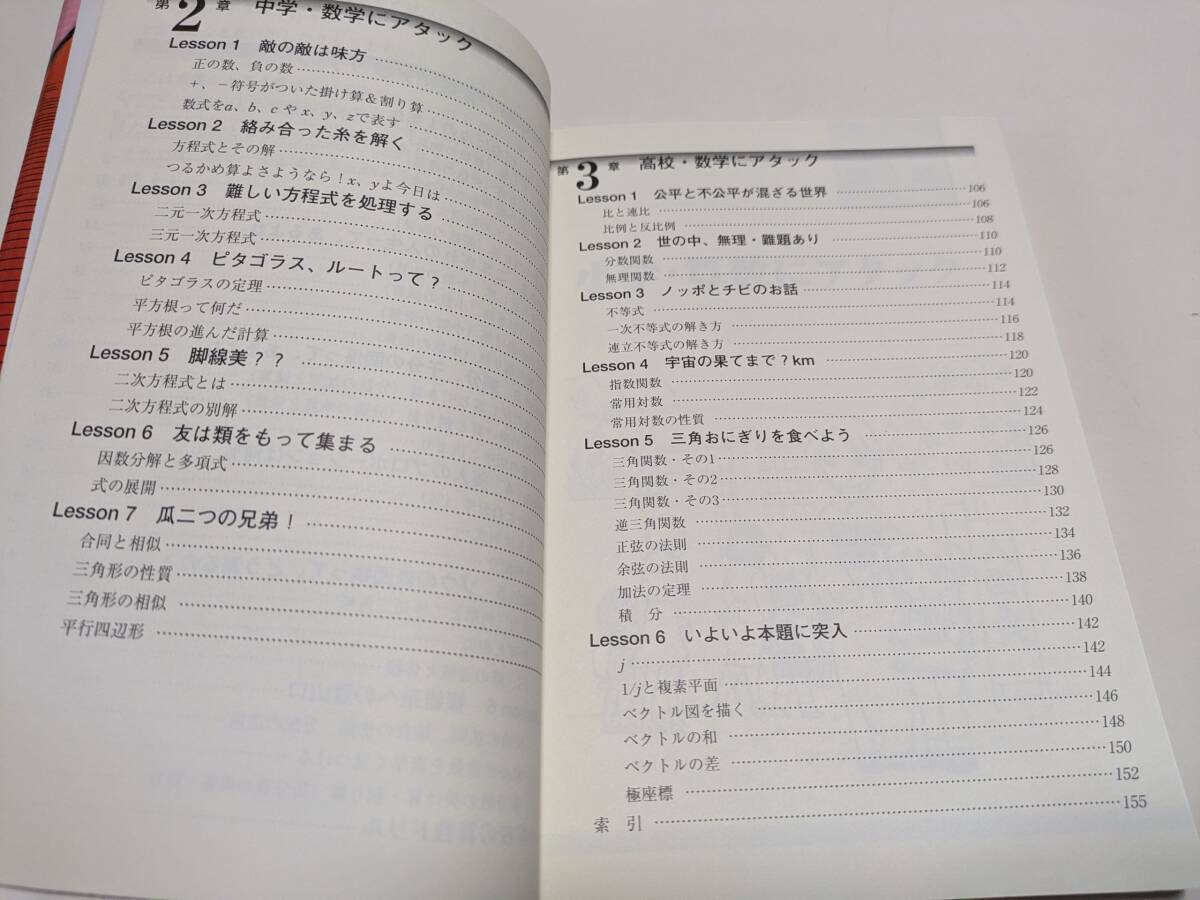 第2章 中学・数学にアタック
Lesson 1 敵の敵は味方
正の数、負の数
+、-符号がついた掛け算&割り算
数式をa、b、cやx、y、zで表す
Lesson 2 絡み合った糸を解く
方程式とその解
つるかめ算よさようなら！x、yよ今日は
Lesson 3 難しい方程式を処理する
二元一次方程式
三元一次方程式
Lesson 4 ピタゴラス、ルートって？
ピタゴラスの定理
平方根って何だ
平方根の進んだ計算
Lesson 5 脚線美？？
二次方程式とは
二次方程式の別解
Lesson 6 友は類をもって集まる
因数分解と多項式
式の展開
Lesson 7 瓜二つの兄弟！
合同と相似
三角形の性質
三角形の相似
平行四辺形
第3章 高校・数学にアタック
Lesson 1 公平と不公平が混ざる世界 106
比と連比 106
比例と反比例 108
Lesson 2 世の中、無理・難題あり 110
分数関数 110
無理関数 112
Lesson 3 ノッポとチビのお話 114
不等式 114
一次不等式の解き方 116
連立不等式の解き方 118
Lesson 4 宇宙の果てまで？km 120
指数関数 120
常用対数 122
常用対数の性質 124
Lesson 5 三角おにぎりを食べよう 126
三角関数・その1 126
三角関数・その2 128
三角関数・その3 130
逆三角関数 132
正弦の法則 134
余弦の法則 136
加法の定理 138
積 分 140
Lesson 6 いよいよ本題に突入 142
j 142
1/jと複素平面 144
ベクトル図を描く 146
ベクトルの和 148
ベクトルの差 150
極座標 152
索 引 155